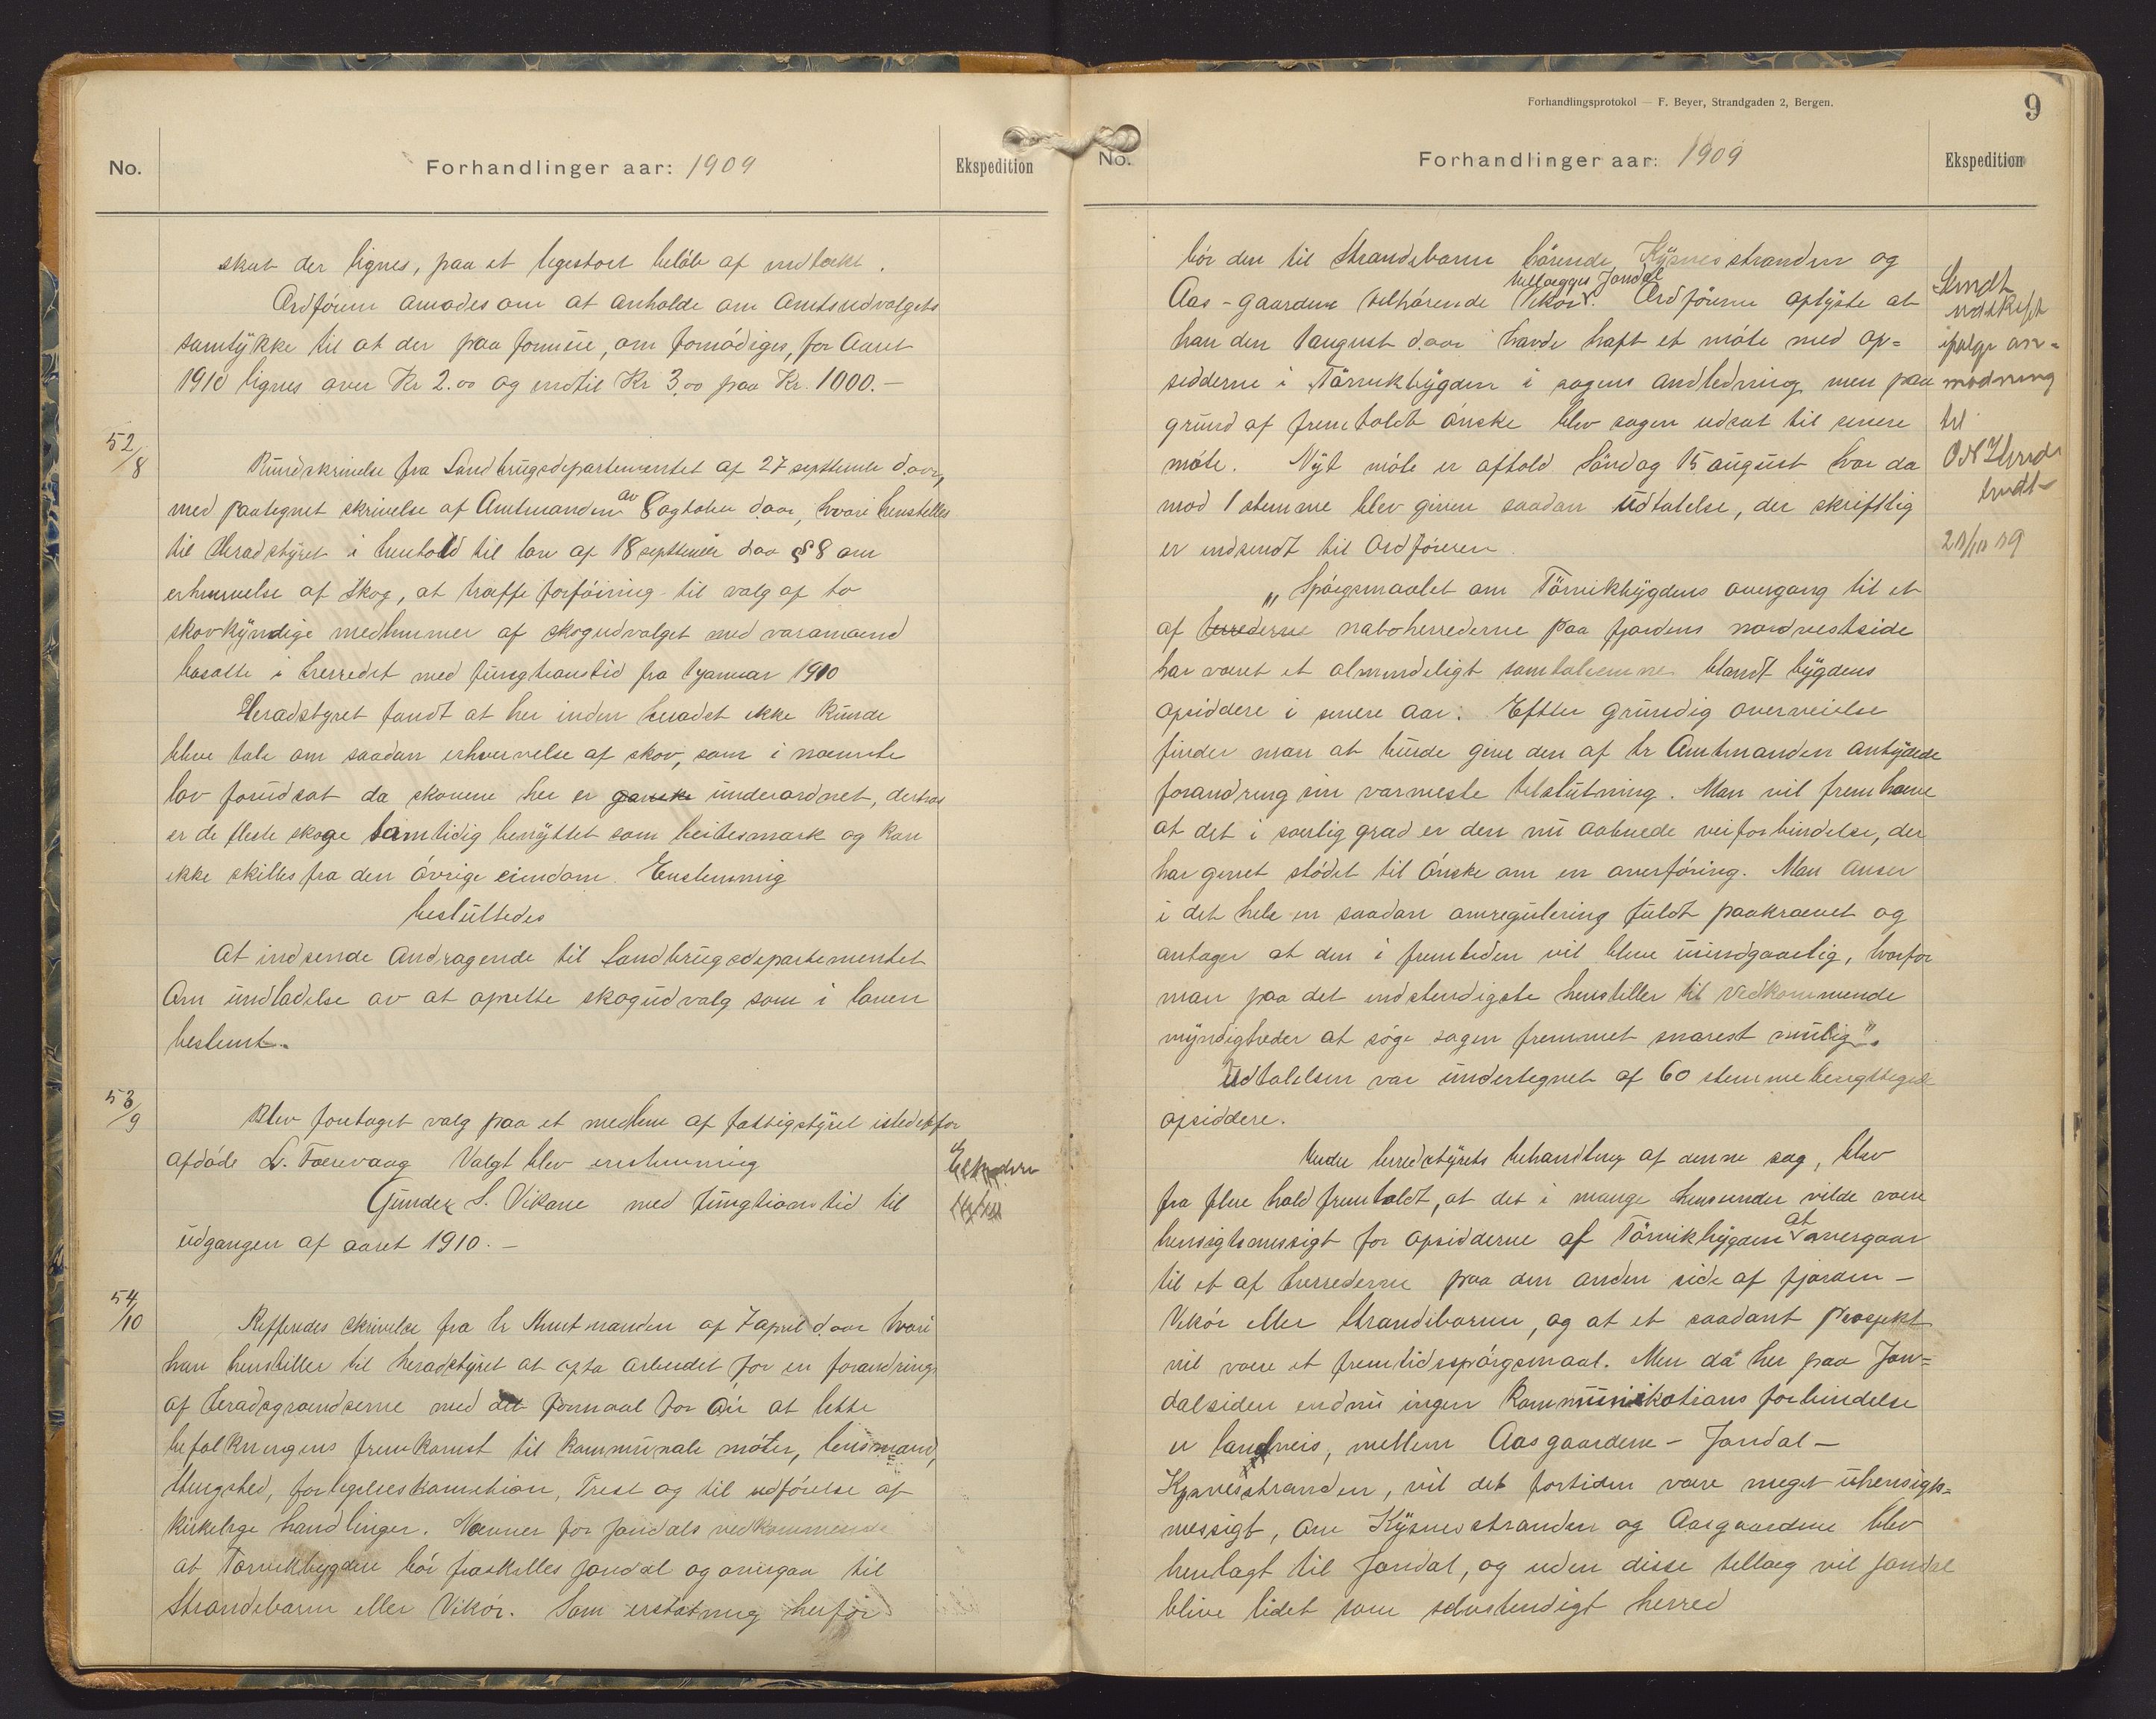 No.
Forhandlinger aar: 1909
Ekspedition
skat der lignes, paa et ligestort beløb af indtækt.
Ordføren amodes om at anholde om Amtsudvalgets
samtykke til at der paa formue, om fornødiges, for Aaret
1910 lignes over Kr 2.00 og indtil Kr 3.00 paa Kr. 1000.-
52/8
Rundskrivelse fra Landbrugsdepartementet af 27 septtembr d.aar,
med paategnet skrivelse af Amtmanden av 8 ogtober d.aar, hvori henstilles
til Heradstyret i henhold til lov af 18 septtember d.aa § 8 om
erhvervelse af skog, at træffe forføining til valg af to
skovkyndige medlemmer af skogudvalget med varamænd
bosatte i herredet med fungtionstid fra 1 januar 1910
Heradstyret fandt at her inden heradet ikke kunde
blive tale om saadan erhvervelse af skov, som i nævnte
lov forudsat da skovene her er ganske underordnet, derhos
er de fleste skoge samtidig benyttet som beitesmark og kan
ikke skilles fra den øvrige eiendom. Enstemmig
besluttedes
At indsende Andragende til Landbrugsdepartementet
Om undladelse av at oprette skogudvalg som i loven
bestemt.
53/9
Blev foretaget valg paa et medlem af fattigstyret istedetfor
afdøde L. Torevang Valgt blev enstemmig
Gunder S. Vikane med fungtionstid til
udgangen af aaret 1910.-
54/10
Refferedes skrivelse fra hr Amtmanden af 7 april d.aar hvori
han henstiller til heradstyret at opta arbeidet for en forandring
af heradsgrændserne med det formaal for Øie at lette
befolkningens fremkomst til kommunale møter, lensmand,
thingsted, forligelseskomition, Prest og til udførelse af
kirkelige handlinger. Nævner for Jondals vedkommende
at Tørvikbygden bør fraskilles Jondal og overgaa til
Strandebarm eller Vikør. Som erstatning herfor
Forhandlingsprotokol — F. Beyer, Strandgaden 2, Bergen.
9
No.
Forhandlinger aar: 1909
Ekspedition
bør den til Strandebarm hørende Kysnesstranden og
Aas-gaardene tilhørende Vikør tillægges Jondal. Ordføreren oplyste at
han den 1 august d.aar havde haft et møte med op=
sidderne i Tørvikbygden i sagens andledning men paa
grund af fremtoldt ønske blev sagen udsat til senere
møte. Nyt møte er afhold Søndag 15 august hvor da
mod 1 stemme blev given saadan Udtalelse, der skriftlig
er indsendt til Ordføreren.
Sendt
udskrift
ifølge an=
modning
til
20/10 09
„Spørgsmaalet om Tørvikbygdens overgang til et
af herrederne naboherrederne paa fjordens nordvestside
har været et almindeligt samtaleemne blandt bygdens
opsiddere i senere Aar. Efter grundig overveielse
finder man at burde give den af hr Amtmanden antydede
forandring sin varmeste tilslutning. Man vil fremhæve
at det i særlig grad er den nu aabnede veiforbindelse, der
har givet stødet til Ønske om en overføring. Man anser
i det hele en saadan omregulering fuldt paakrævet og
antager at den i fremtiden vil blive uundgaaelig, hvorfor
man paa det indstendigste henstiller til vedkommende
myndigheder at søge sagen fremmet snarest mulig".
Udtalelsen var undertegnet af 60 stemmeberegttigede
opsiddere.
Under herredstyrets behandling af denne sag, blev
fra flere hold fremholdt, at det i mange henseender vilde være
hensigtsmessigt for opsidderne af Tørvikbygden at overgaar
til et af herrederne paa den anden side af fjorden -
Vikør eller Strandebarm, og at et saadant Prosjekt
vil være et fremtidsspørgsmaal. Men da her paa Jon=
dalsiden endnu ingen kommunikations forbindelse
er landveis, mellem Aasgaardene - Jondal -
Kysnesstranden, vil det fortiden være meget uhensigts=
messigt, om Kysnesstranden og Aasgaardene blev
henlagt til Jondal, og uden disse tillæg vil Jondal
blive lidet som selvstendigt herred